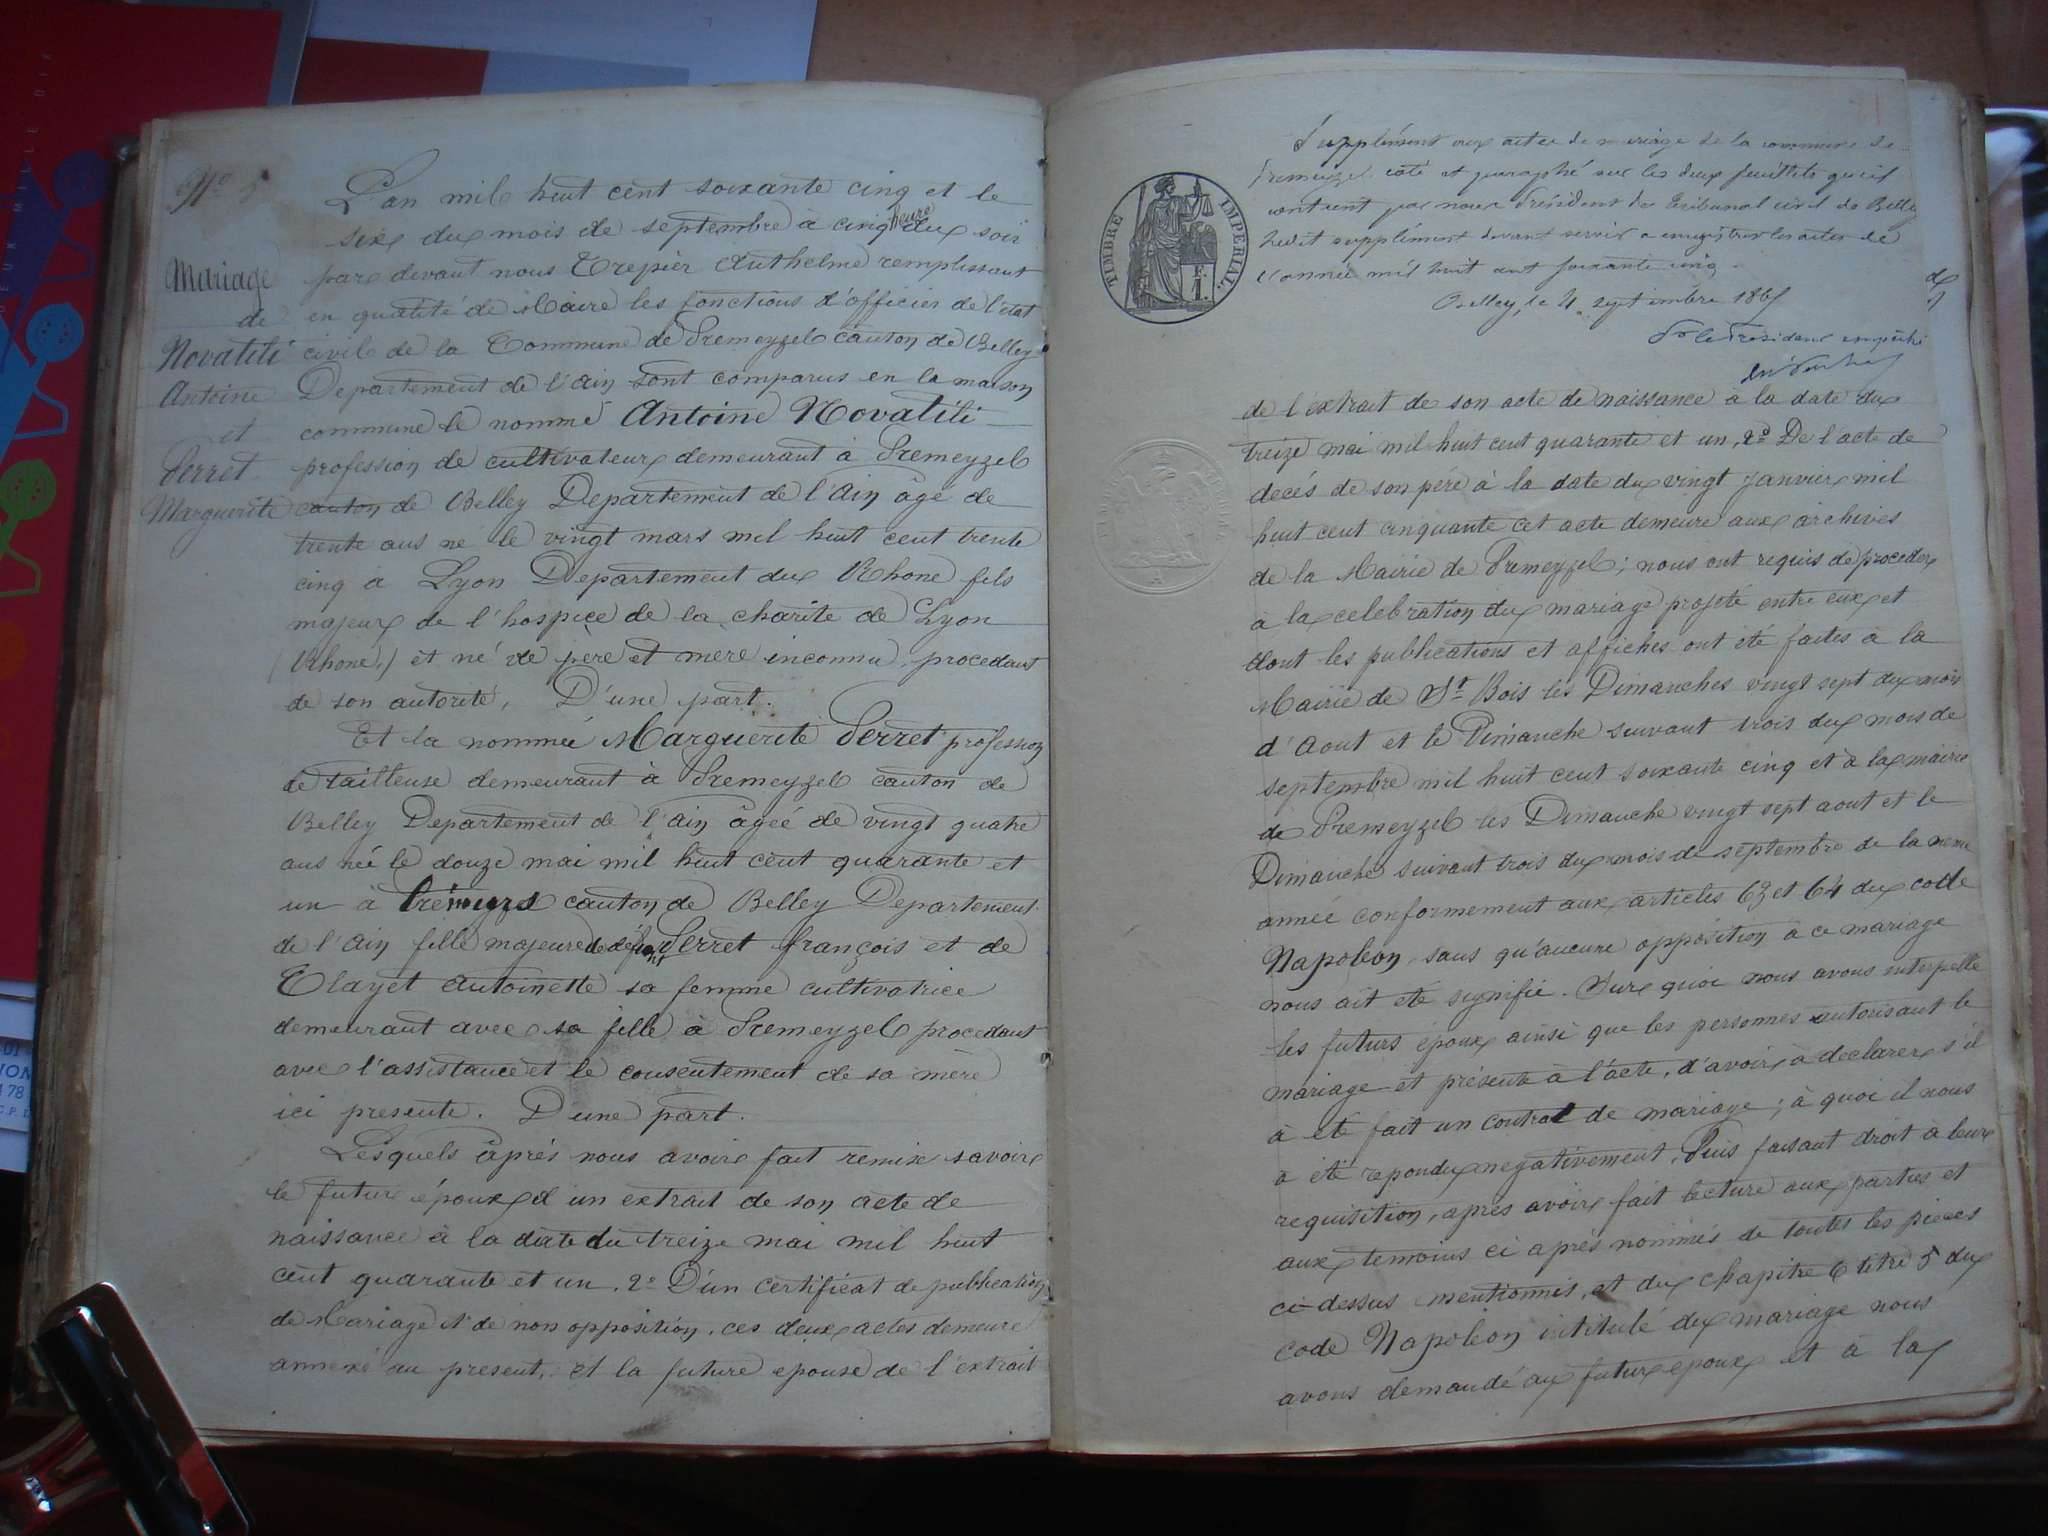 N° 5
Mariage
de
Novatili
Antoine
et
Perret
Marguerite
L'an mil huit cent soixante cinq et le
six du mois de septembre à cinq heure du soir
par devant nous Trepier Anthelme remplissant
en qualité de Maire les fonctions d'officier de l'état
civil de la Commune de Premeyzel canton de Belley
Departement de l'Ain sont comparus en la maison
commune le nommé Antoine Novatili
profession de cultivateur demeurant à Premeyzel
canton de Belley Departement de l'Ain âgé de
trente ans né le vingt mars mil huit cent trente
cinq à Lyon Departement du Rhone fils
majeur de l'hospice de la charité de Lyon
(Rhone) et né de père et mère inconnu, procedant
de son autorité, D'une part.
Et la nommée Marguerite Perret profession
de tailleuse demeurant à Premeyzel canton de
Belley Departement de l'Ain âgée de vingt quatre
ans née le douze mai mil huit cent quarante et
un à canton de Belley Departement
de l'Ain fille majeure de Perret françois et de
Clayet Antoinette sa femme cultivatrice
demeurant avec sa fille à Premeyzel procedant
avec l'assistance et le consentement de sa mère
ici presente. D'une part.
Lesquels après nous avoir fait remise savoir
le futur époux d'un extrait de son acte de
naissance à la date du treize mai mil huit
cent quarante et un, 2° D'un certificat de publication
de Mariage et de non opposition, ces deux actes demeure
annexé au present, et la future epouse de l'extrait
TIMBRE IMPERIAL
Supplément aux actes de mariage de la commune de
Premeyzel coté et paraphé sur les deux feuillets qu'il
contient par nous Président du Tribunal civil de Belley
ledit supplément devant servir a enregistrer les actes de
l'année mil huit cent soixante cinq.
Belley, le 4 septembre 1865
Pr le President empêché
de l'extrait de son acte de naissance à la date du
treize mai mil huit cent quarante et un, 2° De l'acte de
decés de son père à la date du vingt janvier mil
huit cent cinquante cet acte demeure aux archives
de la Mairie de Premeyzel; nous ont requis de proceder
à la celebration du mariage projeté entre eux et
dont les publications et affiches ont été faites à la
Mairie de St Bois les Dimanches vingt sept du mois
d'Aout et le Dimanche suivant trois du mois de
septembre mil huit cent soixante cinq et à la mairie
de Premeyzel les Dimanche vingt sept aout et le
Dimanche suivant trois du mois de septembre de la meme
année conformement aux articles 63 et 64 du code
Napoleon, sans qu'aucune opposition à ce mariage
nous ait été signifié. Sur quoi nous avons interpellé
les futurs époux ainsi que les personnes autorisant le
mariage et présente à l'acte, d'avoir à declarer s'il
à été fait un contrat de mariage; à quoi il nous
a été repondu negativement, Puis faisant droit à leur
requisition, après avoir fait lecture aux parties et
aux temoins ci après nommés de toutes les pieces
ci-dessus mentionnés, et du chapitre 6 titre 5 du
code Napoleon intitulé du mariage nous
avons demandé au futur epoux et à la